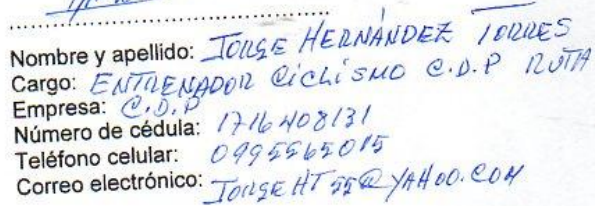 Nombre y apellido: JORGE HERNÁNDEZ TORRES
Cargo: ENTRENADOR CICLISMO C.D.P RUTA
Empresa: C.D.P
Número de cédula: 1716408131
Teléfono celular: 0995565015
Correo electrónico: JORGEHT55@YAHOO.COM